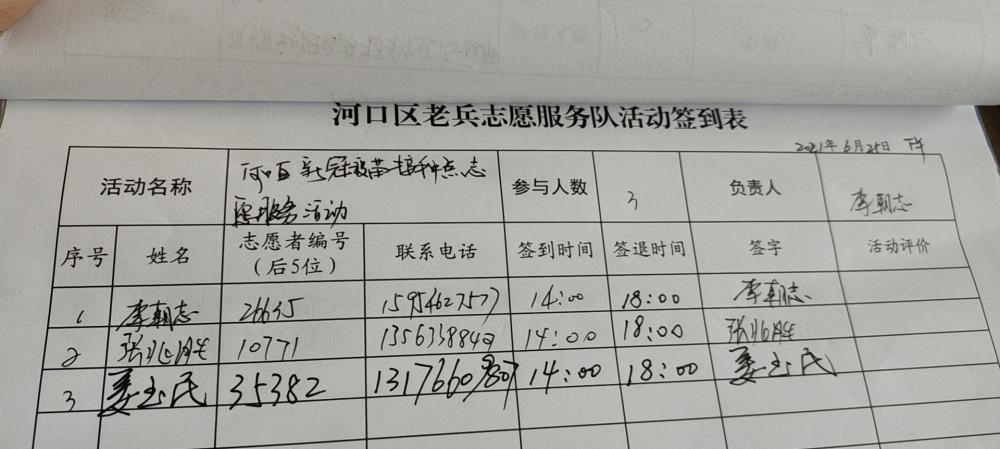 河口区老兵志愿服务队活动签到表
2021年6月25日 下午
活动名称 河口区新冠疫苗接种点志愿服务活动 参与人数 3 负责人 李朝志
序号 姓名 志愿者编号（后5位） 联系电话 签到时间 签退时间 签字 活动评价
1 李朝志 26635 14:00 18:00 李朝志
2 10771 14:00 18:00
3 姜玉民 35382 14:00 18:00 姜玉民